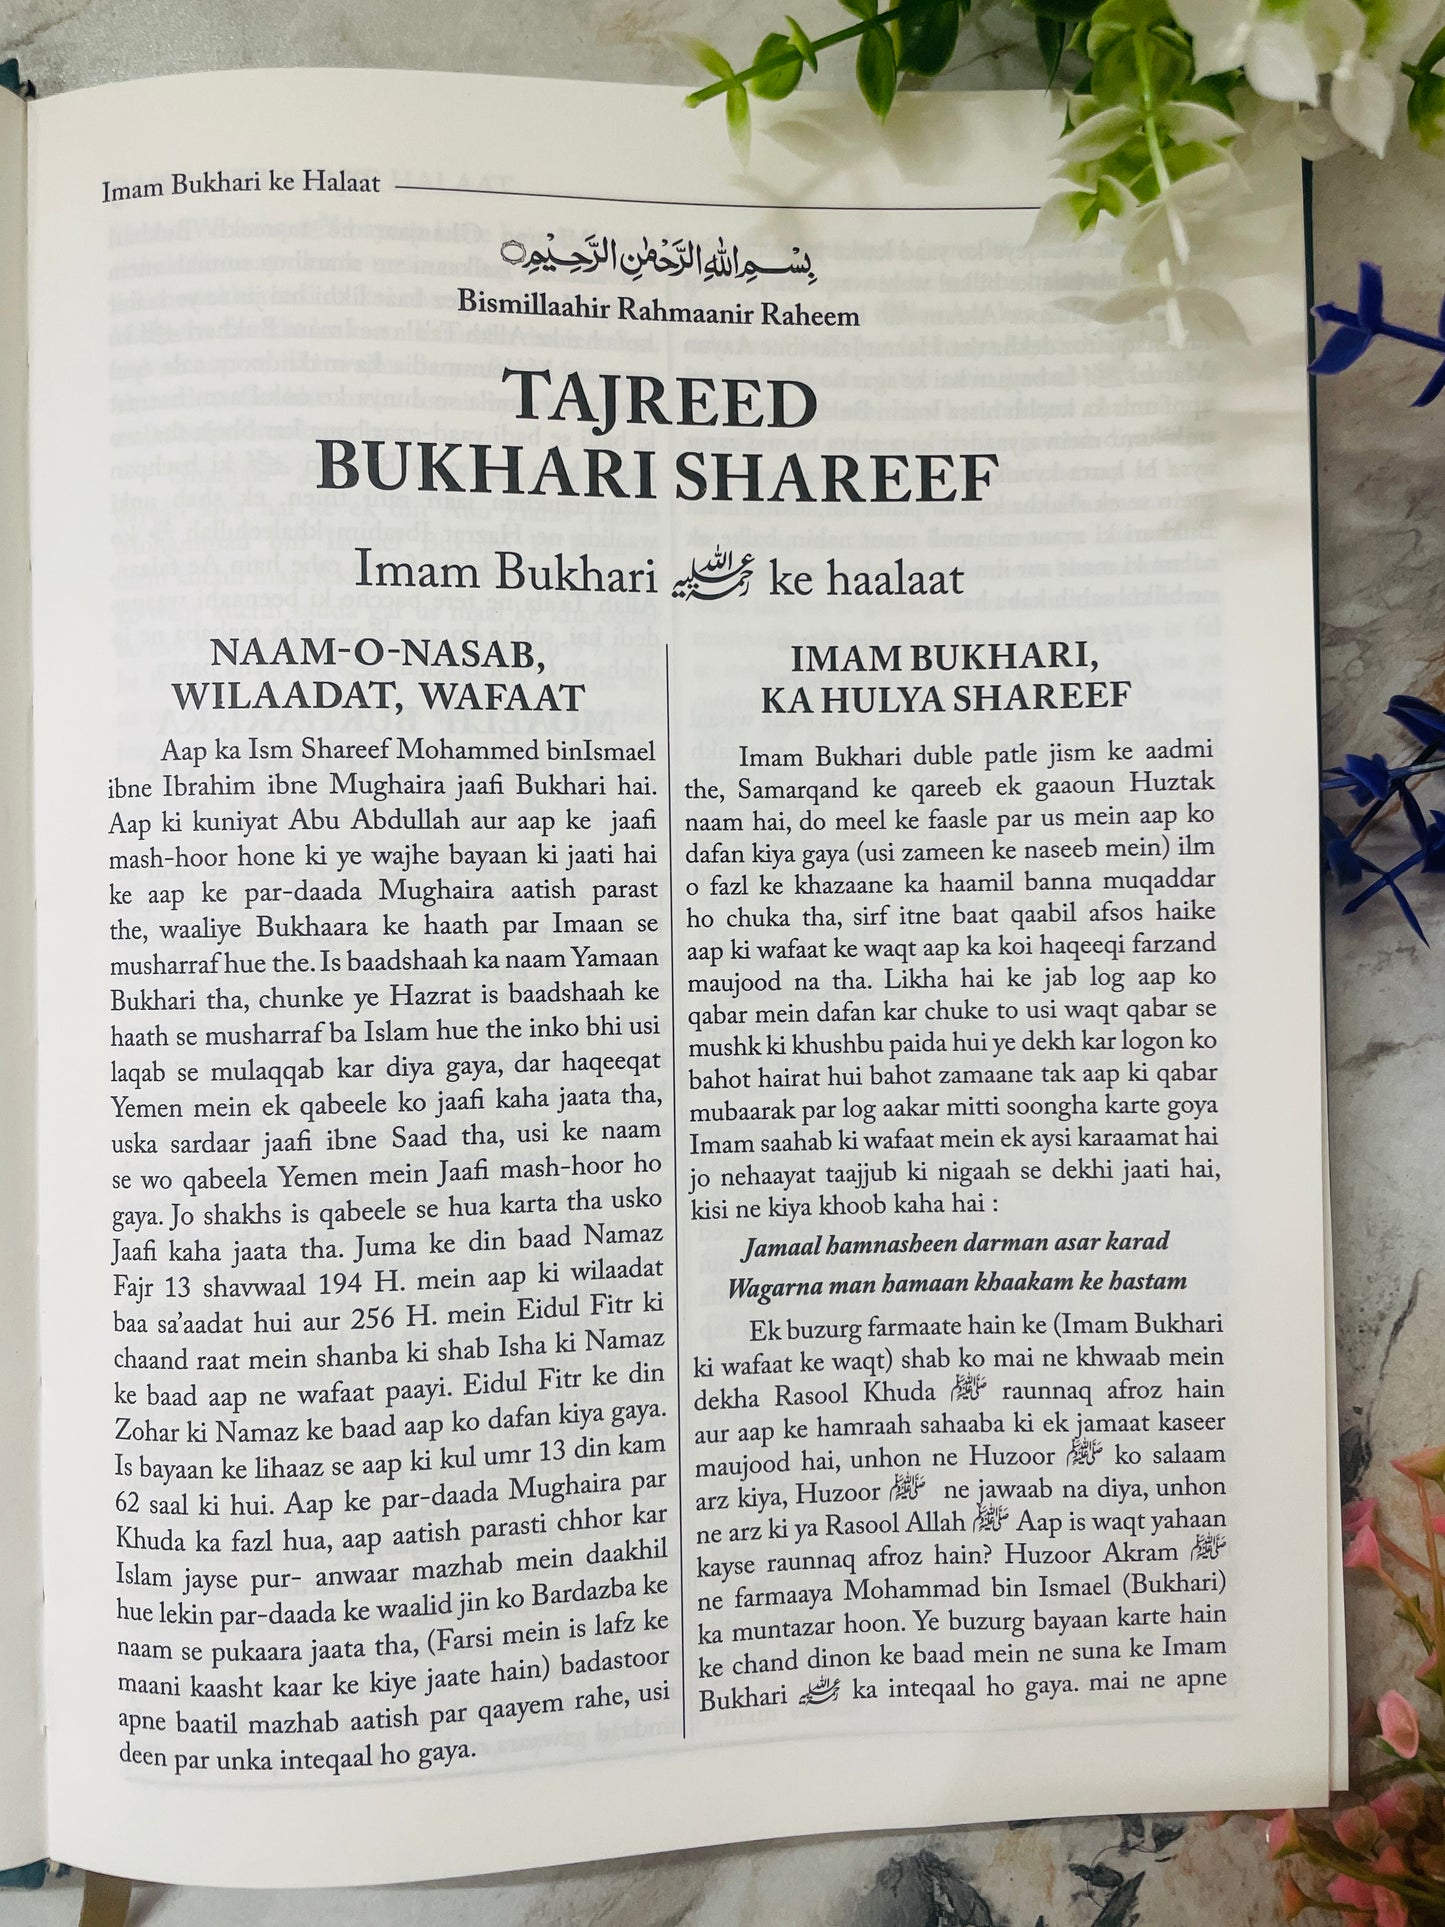 Imam Bukhari ke Halaat
بِسْمِ اللهِ الرَّحْمٰنِ الرَّحِيْمِ
Bismillaahir Rahmaanir Raheem
TAJREED
BUKHARI SHAREEF
Imam Bukhari رحمۃ اللہ علیہ ke haalaat
NAAM-O-NASAB,
WILAADAT, WAFAAT
Aap ka Ism Shareef Mohammed binIsmael
ibne Ibrahim ibne Mughaira jaafi Bukhari hai.
Aap ki kuniyat Abu Abdullah aur aap ke jaafi
mash-hoor hone ki ye wajhe bayaan ki jaati hai
ke aap ke par-daada Mughaira aatish parast
the, waaliye Bukhaara ke haath par Imaan se
musharraf hue the. Is baadshaah ka naam Yamaan
Bukhari tha, chunke ye Hazrat is baadshaah ke
haath se musharraf ba Islam hue the inko bhi usi
laqab se mulaqqab kar diya gaya, dar haqeeqat
Yemen mein ek qabeele ko jaafi kaha jaata tha,
uska sardaar jaafi ibne Saad tha, usi ke naam
se wo qabeela Yemen mein Jaafi mash-hoor ho
gaya. Jo shakhs is qabeele se hua karta tha usko
Jaafi kaha jaata tha. Juma ke din baad Namaz
Fajr 13 shavwaal 194 H. mein aap ki wilaadat
baa sa’aadat hui aur 256 H. mein Eidul Fitr ki
chaand raat mein shanba ki shab Isha ki Namaz
ke baad aap ne wafaat paayi. Eidul Fitr ke din
Zohar ki Namaz ke baad aap ko dafan kiya gaya.
Is bayaan ke lihaaz se aap ki kul umr 13 din kam
62 saal ki hui. Aap ke par-daada Mughaira par
Khuda ka fazl hua, aap aatish parasti chhor kar
Islam jayse pur- anwaar mazhab mein daakhil
hue lekin par-daada ke waalid jin ko Bardazba ke
naam se pukaara jaata tha, (Farsi mein is lafz ke
maani kaasht kaar ke kiye jaate hain) badastoor
apne baatil mazhab aatish par qaayem rahe, usi
deen par unka inteqaal ho gaya.
IMAM BUKHARI,
KA HULYA SHAREEF
Imam Bukhari duble patle jism ke aadmi
the, Samarqand ke qareeb ek gaaoun Huztak
naam hai, do meel ke faasle par us mein aap ko
dafan kiya gaya (usi zameen ke naseeb mein) ilm
o fazl ke khazaane ka haamil banna muqaddar
ho chuka tha, sirf itne baat qaabil afsos haike
aap ki wafaat ke waqt aap ka koi haqeeqi farzand
maujood na tha. Likha hai ke jab log aap ko
qabar mein dafan kar chuke to usi waqt qabar se
mushk ki khushbu paida hui ye dekh kar logon ko
bahot hairat hui bahot zamaane tak aap ki qabar
mubaarak par log aakar mitti soongha karte goya
Imam saahab ki wafaat mein ek aysi karaamat hai
jo nehaayat taajjub ki nigaah se dekhi jaati hai,
kisi ne kiya khoob kaha hai :
Jamaal hamnasheen darman asar karad
Wagarna man hamaan khaakam ke hastam
Ek buzurg farmaate hain ke (Imam Bukhari
ki wafaat ke waqt) shab ko mai ne khwaab mein
dekha Rasool Khuda ﷺ raunnaq afroz hain
aur aap ke hamraah sahaaba ki ek jamaat kaseer
maujood hai, unhon ne Huzoor ﷺ ko salaam
arz kiya, Huzoor ﷺ ne jawaab na diya, unhon
ne arz ki ya Rasool Allah ﷺ Aap is waqt yahaan
kayse raunnaq afroz hain? Huzoor Akram ﷺ
ne farmaaya Mohammad bin Ismael (Bukhari)
ka muntazar hoon. Ye buzurg bayaan karte hain
ke chand dinon ke baad mein ne suna ke Imam
Bukhari رحمۃ اللہ علیہ ka inteqaal ho gaya. mai ne apne